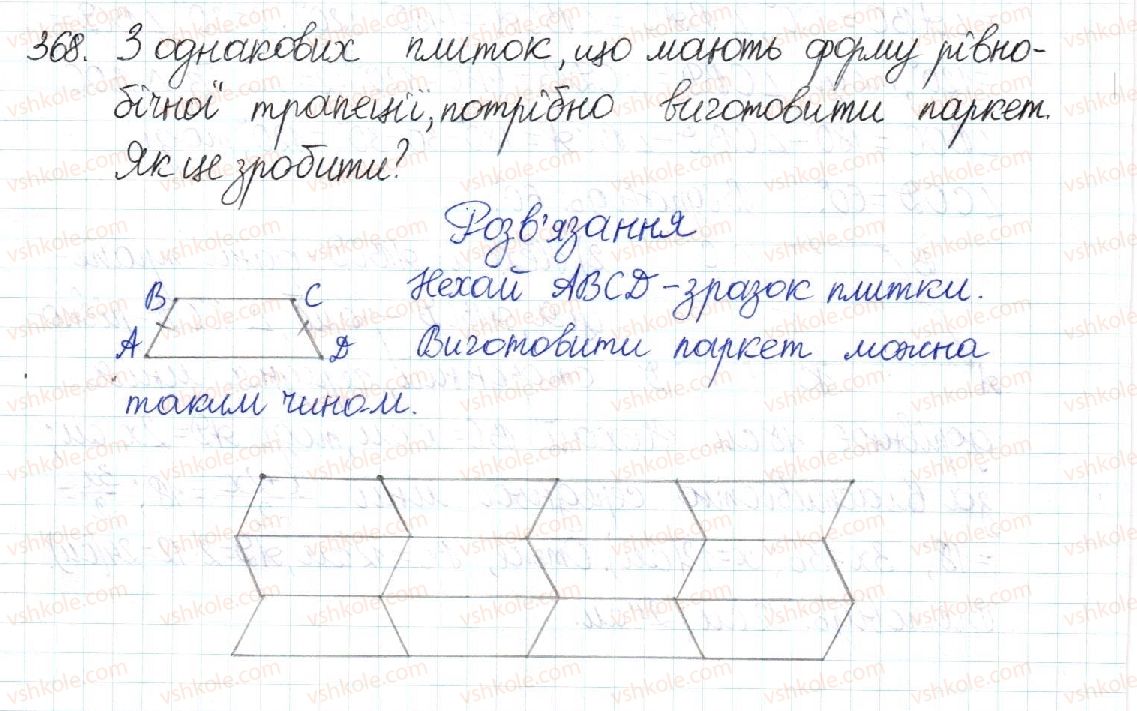 368. З однакових плиток, що мають форму рівно-
бічної трапеції, потрібно виготовити паркет.
Як це зробити?
Розв'язання
Нехай ABCD - зразок плитки.
B C
A D
Виготовити паркет можна
таким чином.